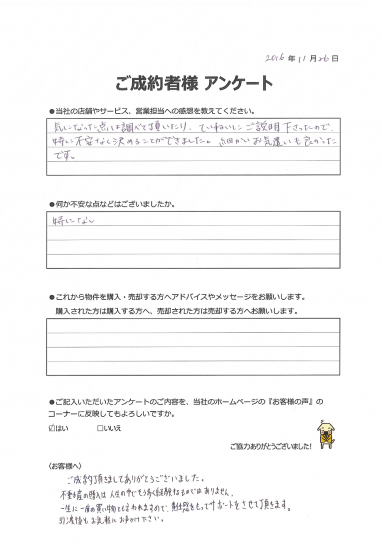 2016年11月26日
ご成約者様 アンケート
●当社の店舗やサービス、営業担当への感想を教えてください。
気になった点は調べて頂いたり、ていねいにご説明下さったので、
特に不安なく決めることができました。細かいお気遣いも良かった
です。
●何か不安な点などはございましたか。
特になし
●これから物件を購入・売却する方へアドバイスやメッセージをお願いします。
購入された方は購入する方へ、売却された方は売却する方へお願いします。
●ご記入いただいたアンケートのご内容を、当社のホームページの『お客様の声』の
コーナーに反映してもよろしいですか。
☑はい　□いいえ
ご協力ありがとうございました!
〈お客様へ〉
ご成約頂きましてありがとうございました。
不動産の購入は人生の中でもう多く経験するものではありません。
一生に一度の買い物とも言われますので、責任感をもってサポートをさせて頂きます。
引渡後もお気軽にお声かけ下さい。